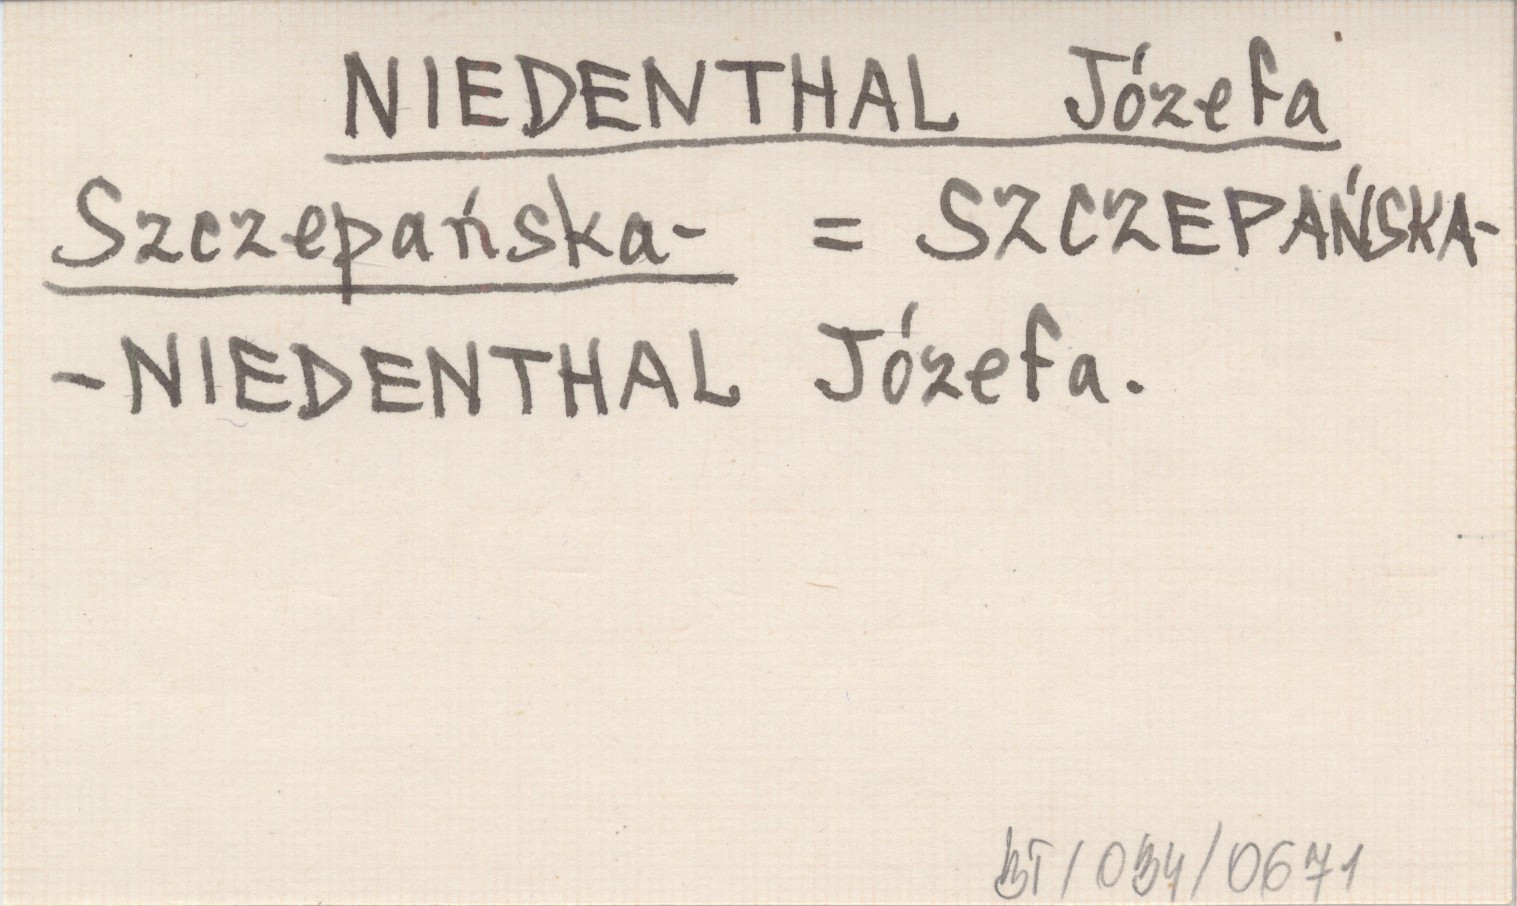 NIEDENTHAL Józefa
Szczepańska- = SZCZEPAŃSKA-
-NIEDENTHAL Józefa.
BT/034/0671